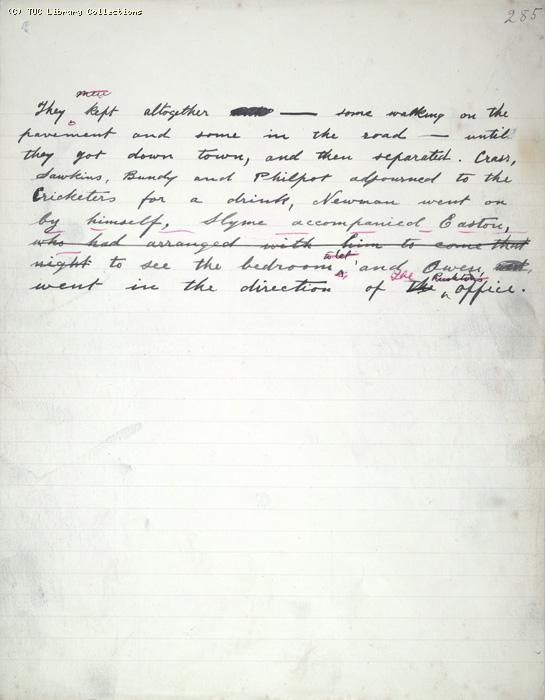 (C) TUC Library Collections
285
men
They kept altogether — some walking on the
pavement and some in the road — until
they got down town, and then separated. Crass,
Sawkins, Bundy and Philpot adjourned to the
Cricketers for a drink, Newman went on
by himself, Slyme accompanied Easton,
who had arranged with him to come that
to let
night to see the bedroom, and Owen
The Rushton's
went in the direction of the office.